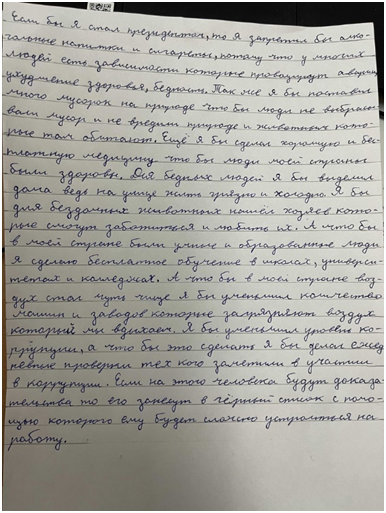 Если бы я стал президентом, то я запретил бы алко-
гольные напитки и сигареты, потому что у многих
людей есть зависимости которые провоцируют аварии,
ухудшение здоровья, бедность. Так же я бы поставил
много мусорок на природе что бы люди не выбрасы-
вали мусор и не вредили природе и животным кото-
рые там обитают. Ещё я бы сделал хорошую и бес-
платную медицину что бы люди моей страны
были здоровы. Для бедных людей я бы выделил
дома ведь на улице жить грязно и холодно. Я бы
для бездомных животных нашёл хозяев кото-
рые смогут заботиться и любить их. А что бы
в моей стране были умные и образованные люди
я сделаю бесплатное обучение в школах, универси-
тетах и колледжах. А что бы в моей стране воз-
дух стал чуть чище я бы уменьшил количество
машин и заводов которые загрязняют воздух
который мы вдыхаем. Я бы уменьшил уровень ко-
ррупции, а что бы это сделать я бы делал ежед-
невные проверки тех кого заметили в участии
в коррупции. Если на этого человека будут доказа-
тельства то его занесут в чёрный список с помо-
щью которого ему будет сложно устроиться на
работу.